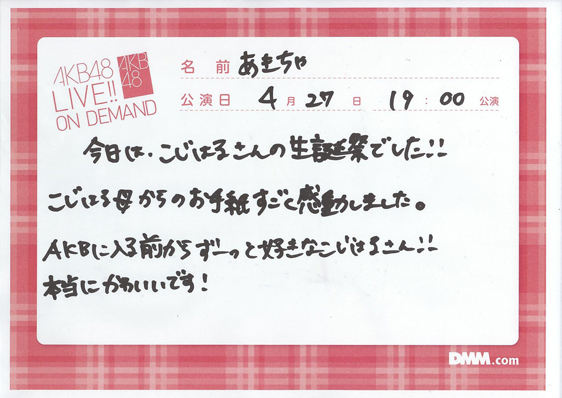 AKB48
LIVE!!
ON DEMAND
AKB
48
名 前 あきちゃ
公演日 4月27日 19:00公演
今日は、こじはるさんの生誕祭でした!!
こじはる母からのお手紙すごく感動しました。
AKBに入る前からずーっと好きなこじはるさん!!
本当にかわいいです!
DMM.com